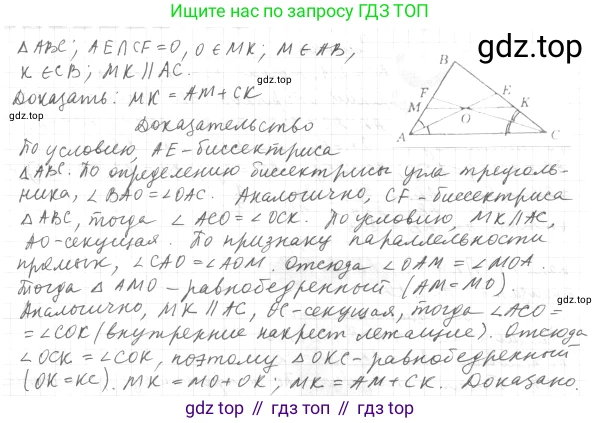 Ищите нас по запросу ГДЗ ТОП
△ABC; AE∩CF=O, O∈MK; M∈AB;
K∈CB; MK∥AC.
Доказать: MK = AM+CK
gdz.top
B
F
E
M
K
O
A
C
Доказательство
По условию, AE-биссектриса
△ABC. По определению биссектрисы угла треуголь-
ника, ∠BAO=∠OAC. Аналогично, CF-биссектриса
△ABC, тогда ∠ACO=∠OCK. По условию, MK∥AC,
AO-секущая. По признаку параллельности
прямых, ∠CAO=∠AOM. Отсюда ∠OAM=∠MOA.
Тогда △AMO-равнобедренный (AM=MO).
Аналогично, MK∥AC, OC-секущая, тогда ∠ACO=
=∠COK (внутренние накрест лежащие). Отсюда
∠OCK=∠COK, поэтому △OKC-равнобедренный
(OK=KC). MK=MO+OK; MK=AM+CK. Доказано.
gdz.top // гдз.топ // gdz.top